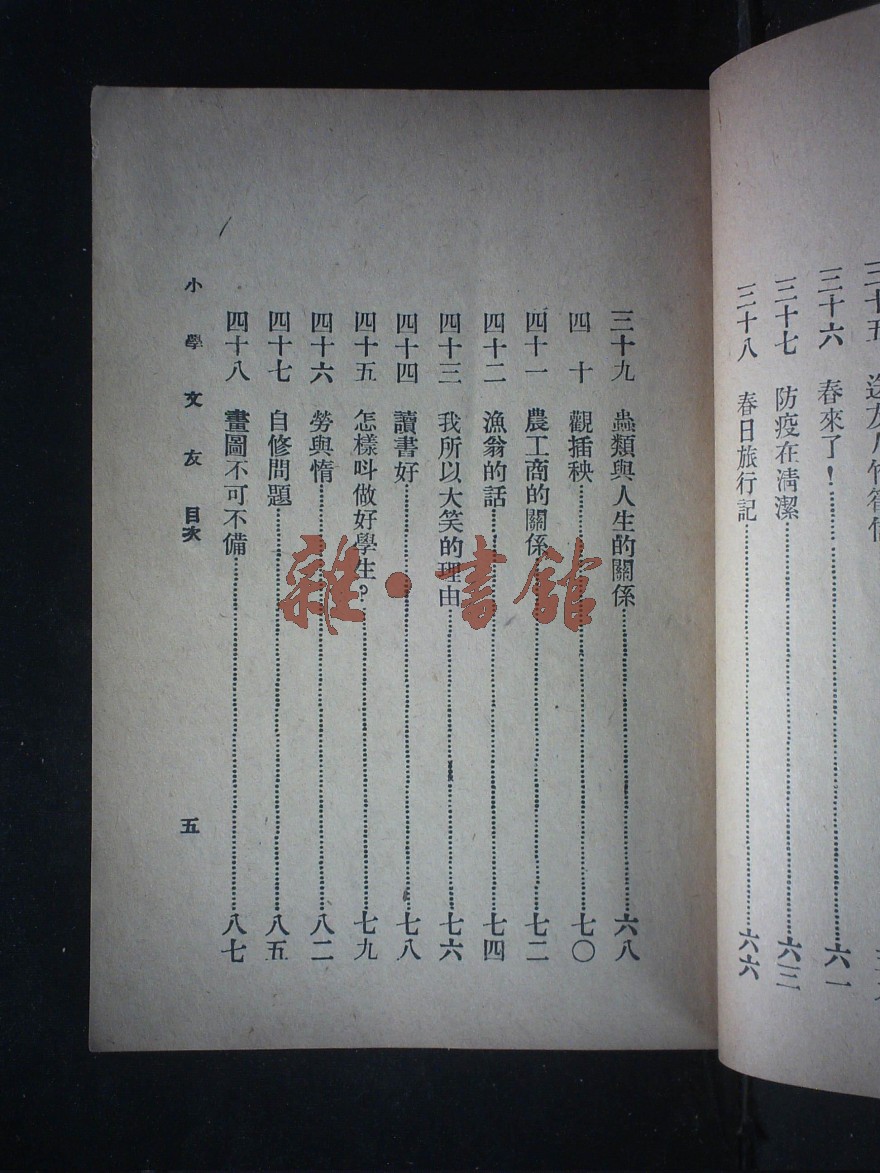 三十五
三十六 春來了！ 六一
三十七 防疫在淸潔 六三
三十八 春日旅行記 六六
三十九 蟲類與人生的關係 六八
四十 觀插秧 七〇
四十一 農工商的關係 七二
四十二 漁翁的話 七四
四十三 我所以大笑的理由 七六
四十四 讀書好 七八
四十五 怎樣呌做好學生？ 七九
四十六 勞與惰 八二
四十七 自修問題 八五
四十八 畫圖不可不備 八七
小學文友 目次 五
雜·書館